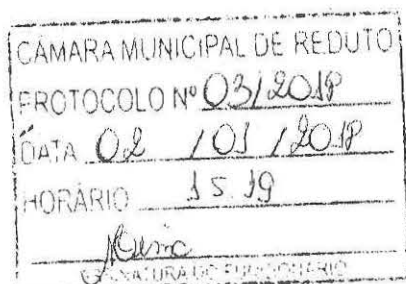 CÂMARA MUNICIPAL DE REDUTO
PROTOCOLO Nº 03/2018
DATA 02 / 01 / 2018
HORÁRIO 15 19
ASSINATURA DO FUNCIONÁRIO